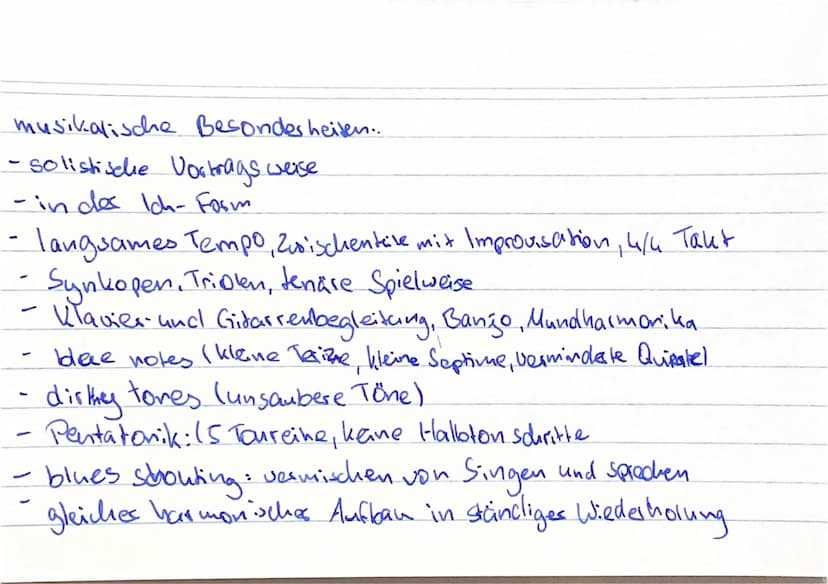 musikalische Besonderheiten:
- solistische Vortragsweise
- in der Ich-Form
- langsames Tempo, Zwischenteile mit Improvisation, 4/4 Takt
- Synkopen, Triolen, tenäre Spielweise
- Klavier- und Gitarrenbegleitung, Banjo, Mundharmonika
- blue notes (kleine Terze, kleine Septime, verminderte Quinte)
- dirty tones (unsaubere Töne)
- Pentatonik: (5 Tonreihe, keine Halbtonschritte
- blues shouting: vermischen von Singen und sprechen
- gleicher harmonischer Aufbau in ständiger Wiederholung